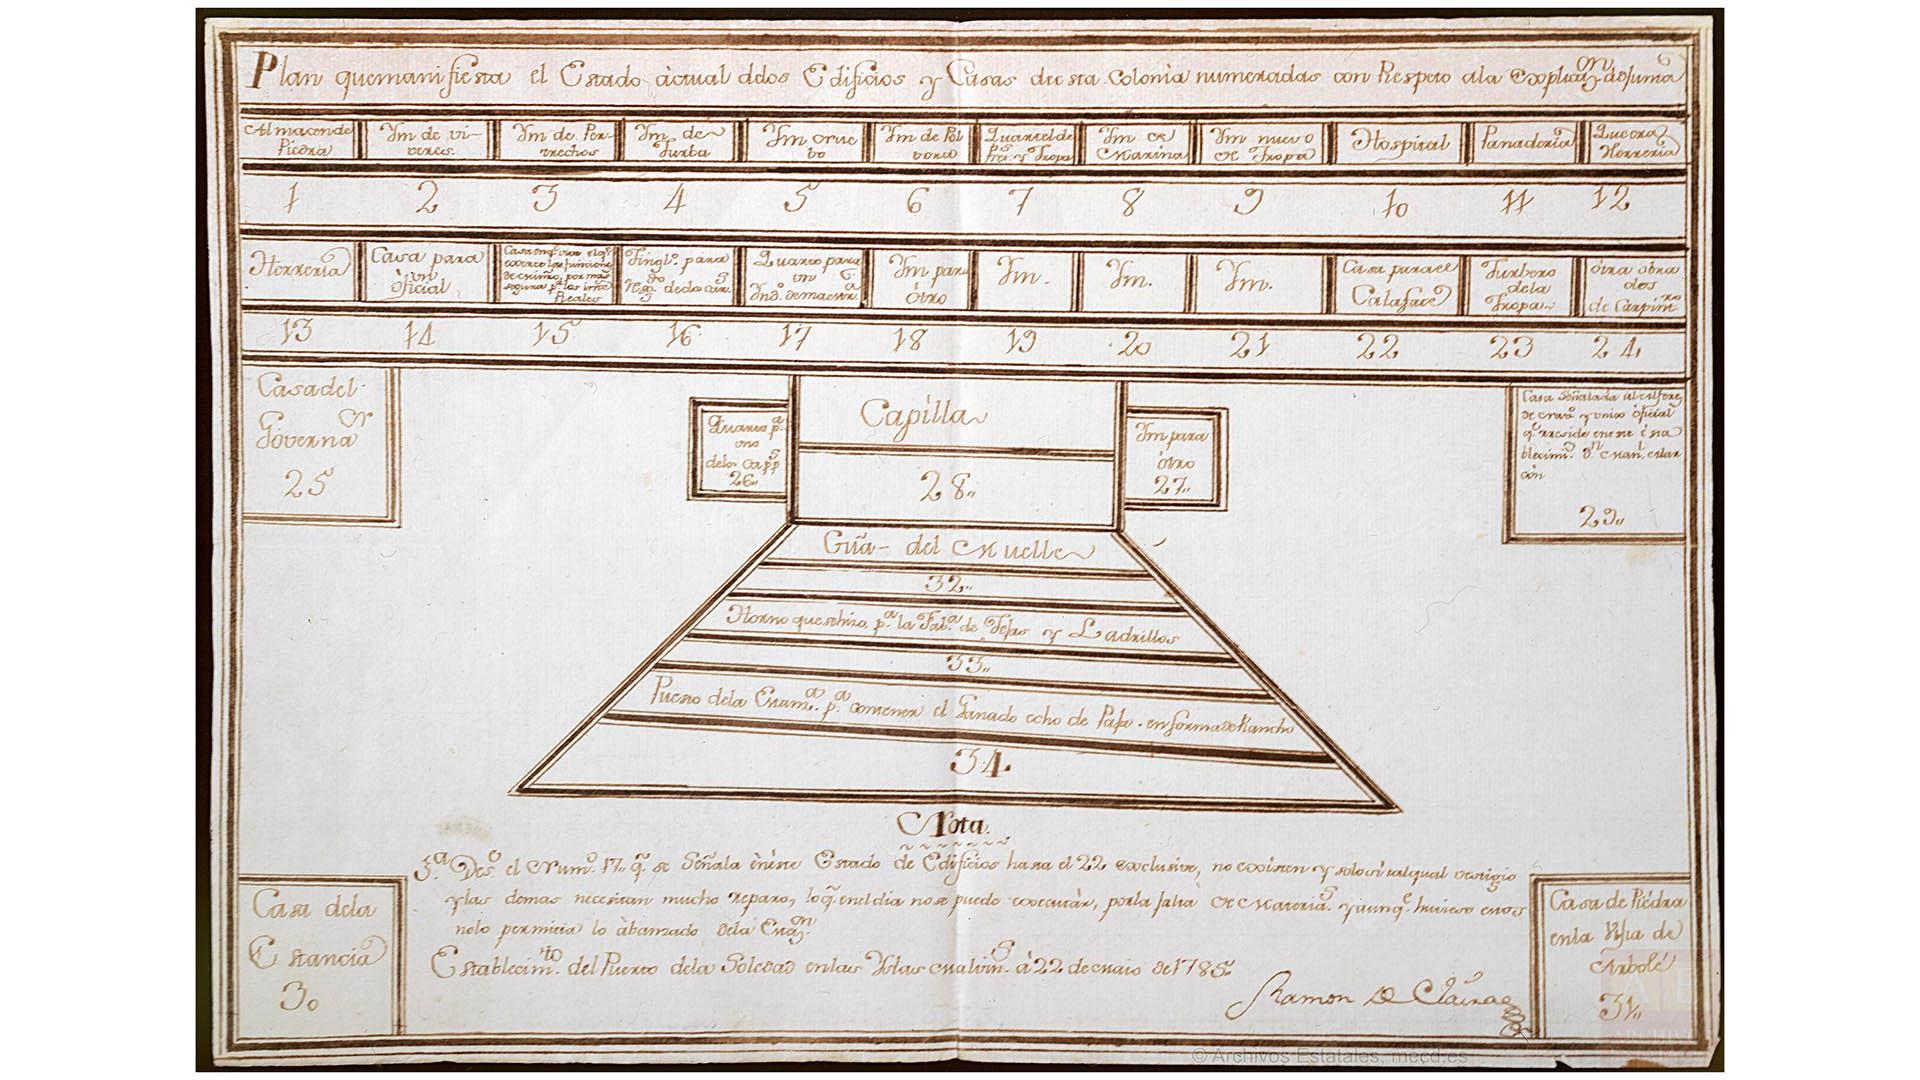 Plan quemanifiesta el Estado àctual delos Edificios y Casas deesta Colonia numeradas con Respeto ala
Almacen de
Piedra
Ym de vi-
veres.
Ym de Per-
trechos
Ym de
Turba
Ym nue
bo
Ym de Pol
vora
Quartel de
y Tropa
Ym de
Marina
Ym nuevo
de Tropa
Hospital
Panaderia
Herreria
1
2
3
4
5
6
7
8
9
10
11
12
Herreria
Casa para
un
òficial
para
Quarto para
un
Ym par
òtro
Ym.
Ym.
Ym.
Casa parael
Calafate
Turbero
dela
Tropa
òtra obra
dos
de Carpint.ros
13
14
15
16
17
18
19
20
21
22
23
24
Casa del
Governa.or
25
Quarto p.a
uno
26
Capilla
28
Ym para
òtro
27
Casa Señalada al Alferez
y unico òficial
q.e reside eneste ésta
blecim.to
29
Grua del Muelle
32
Horno quesehizo p.a la Fab.a de Tejas y Ladrillos
33
Puesto dela p.a contener el Ganado echo de Paja. en forma de Rancho
34
Nota
el Num.o 17 q.e se Señala èneste Estado de Edificios hasta el 22 exclusive, no existen y solo si talqual vestigio
y las demas necesitan mucho reparo, loq.e eneldia nose puede executàr, porla falta de Materia.s y aunq.e huviese
nolo permitia lo àbanzado dela
Establecim.to del Puerto dela Soledad enlas Yslas Malvin.s à 22 de Maio de 1785
Ramon De Clairac
Casa dela
Estancia
30
Casa de Piedra
enla Ysla de
Arbolé
31
© Archivos Estatales, mecd.es